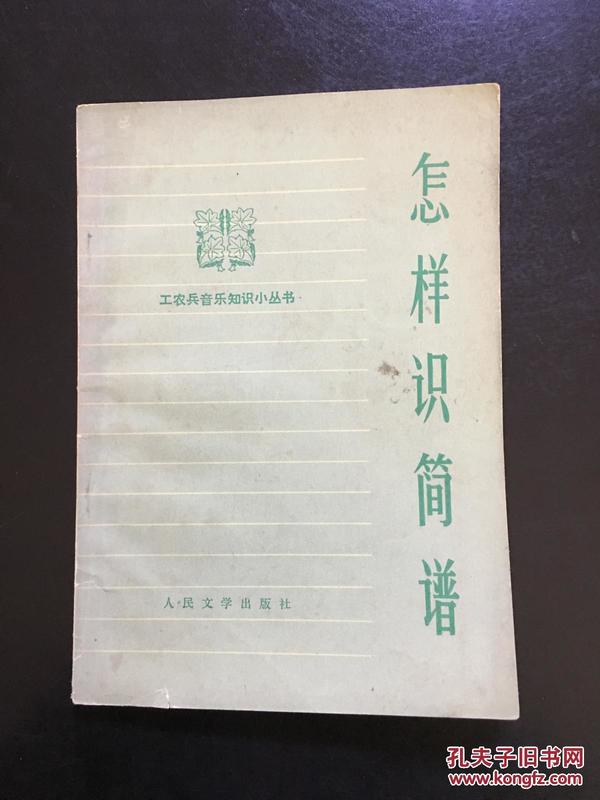 怎样识简谱
工农兵音乐知识小丛书
人民文学出版社
孔夫子旧书网
www.kongfz.com